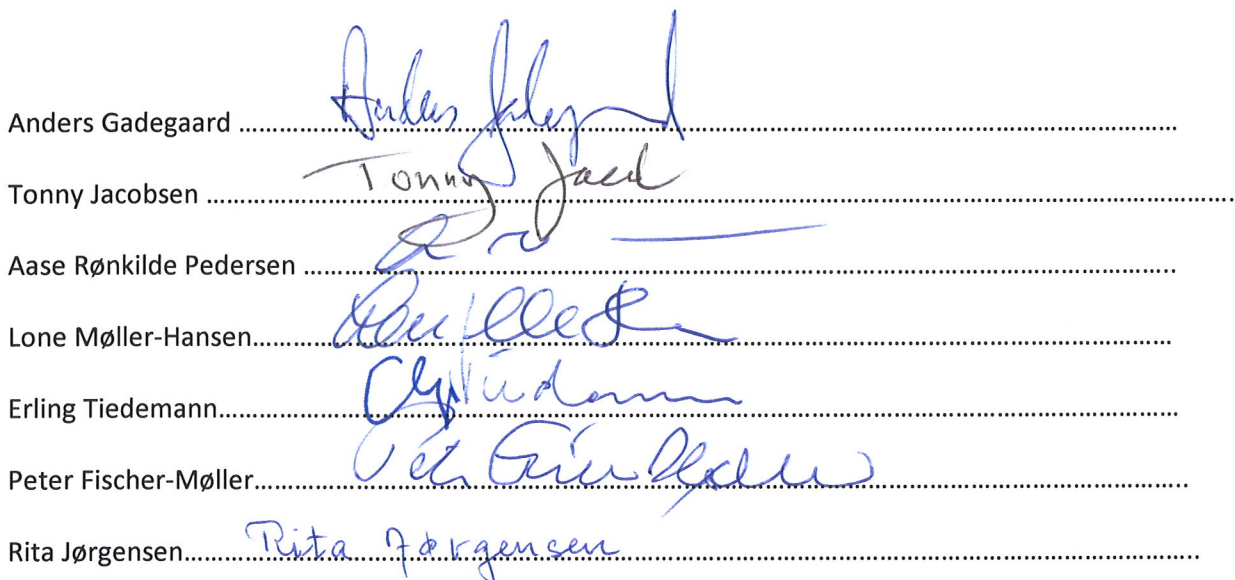 Anders Gadegaard ........ Anders Gadegaard
Tonny Jacobsen ........ Tonny Jacobsen
Aase Rønkilde Pedersen ........
Lone Møller-Hansen........
Erling Tiedemann........ Tiedemann
Peter Fischer-Møller........ Peter Fischer-Møller
Rita Jørgensen........ Rita Jørgensen